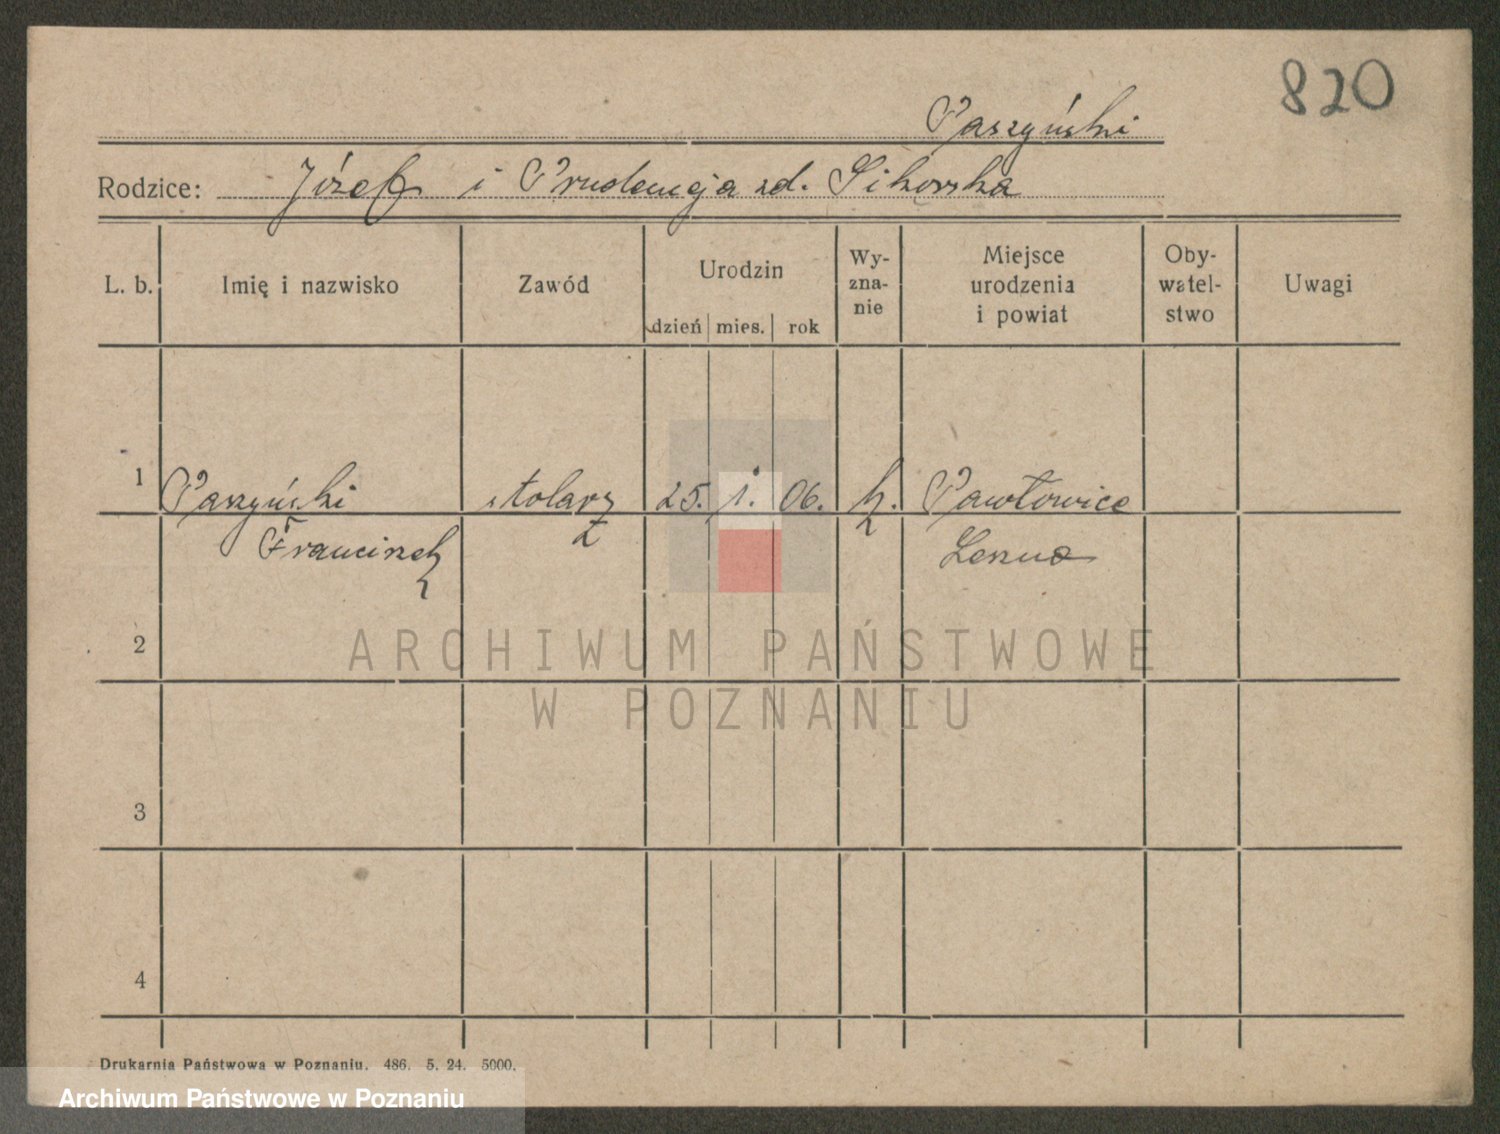 820
Paszyński
Rodzice: Józef i Prudencja zd. Sikorska
L. b. Imię i nazwisko Zawód Urodzin dzień mies. rok Wy-zna-nie Miejsce urodzenia i powiat Oby-watel-stwo Uwagi
1 Paszyński stolarz 25. 1. 06. k. Pawłowice
Franciszek Leszno
2
ARCHIWUM PAŃSTWOWE
W POZNANIU
3
4
Drukarnia Państwowa w Poznaniu. 486. 5. 24. 5000.
Archiwum Państwowe w Poznaniu